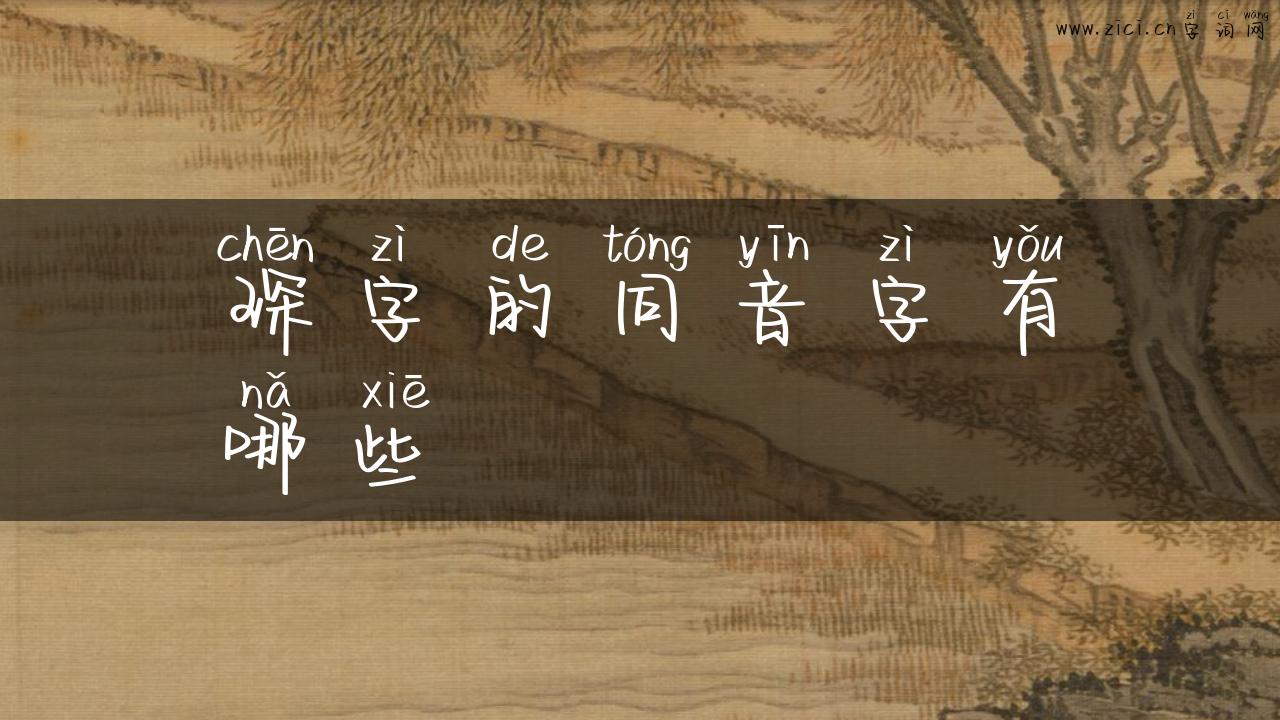 www.zici.cn
zì cí wǎng
字词网
chēn zì de tóng yīn zì yǒu
琛字的同音字有
nǎ xiē
哪些